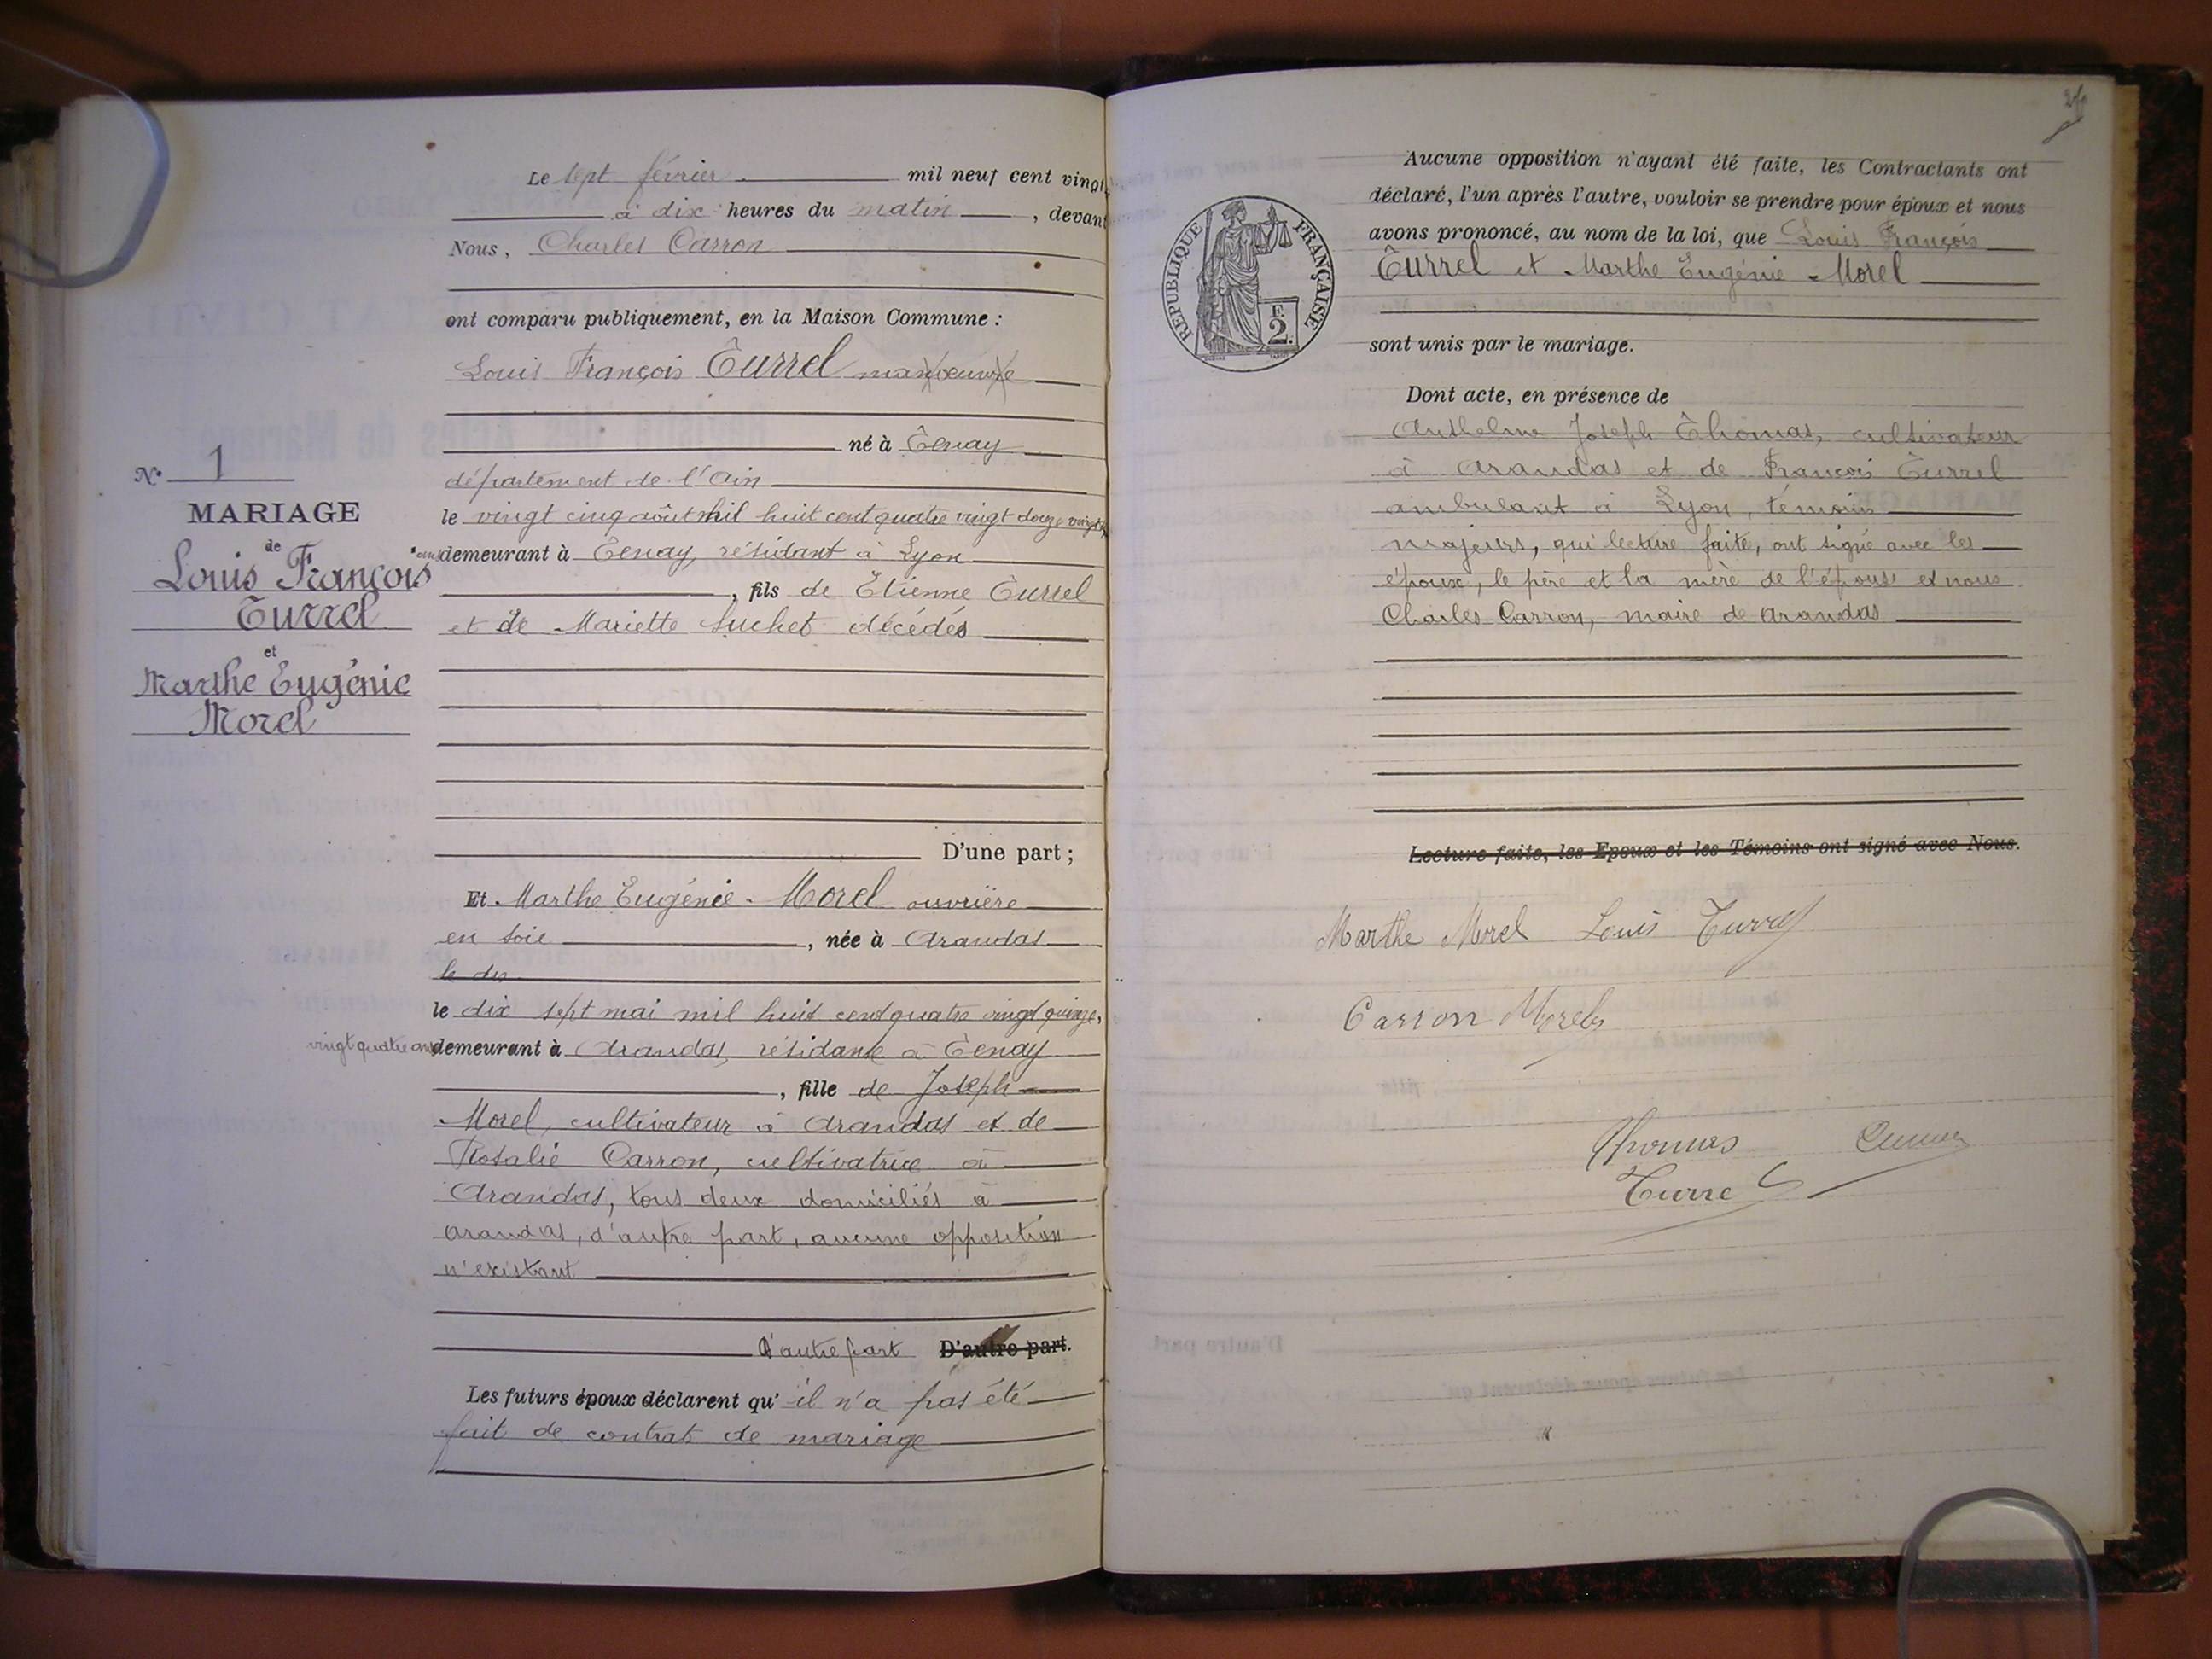 Le sept février mil neuf cent vingt
à dix heures du matin, devant
Nous, Charles Carron
ont comparu publiquement, en la Maison Commune :
Louis François Turrel manoeuvre
né à Tenay
département de l'Ain
le vingt cinq août mil huit cent quatre vingt douze vingt
ans demeurant à Tenay, résidant à Lyon
, fils de Etienne Turrel
et de Mariette Suchet décédés
D'une part ;
N° 1
MARIAGE
de
Louis François
Turrel
et
Marthe Eugénie
Morel
Et Marthe Eugénie Morel ouvrière
en soie, née à Arandas
le dix
le dix sept mai mil huit cent quatre vingt quinze,
vingt quatre ans demeurant à Arandas, résidante à Tenay
, fille de Joseph
Morel, cultivateur à Arandas et de
Rosalie Carron, cultivatrice à
Arandas, tous deux domiciliés à
Arandas, d'autre part, aucune opposition
n'existant
d'autre part D'autre part.
Les futurs époux déclarent qu'il n'a pas été
fait de contrat de mariage
Aucune opposition n'ayant été faite, les Contractants ont
déclaré, l'un après l'autre, vouloir se prendre pour époux et nous
avons prononcé, au nom de la loi, que Louis François
Turrel et Marthe Eugénie Morel
sont unis par le mariage.
REPUBLIQUE FRANÇAISE
F.
2.
Dont acte, en présence de
Anthelme Joseph Thomas, cultivateur
à Arandas et de François Turrel
ambulant à Lyon, témoins
majeurs, qui lecture faite, ont signé avec les
époux, le père et la mère de l'épouse et nous
Charles Carron, maire de Arandas
Lecture faite, les Epoux et les Témoins ont signé avec Nous.
Marthe Morel Louis Turrel
Carron Morel
Thomas
Turrel